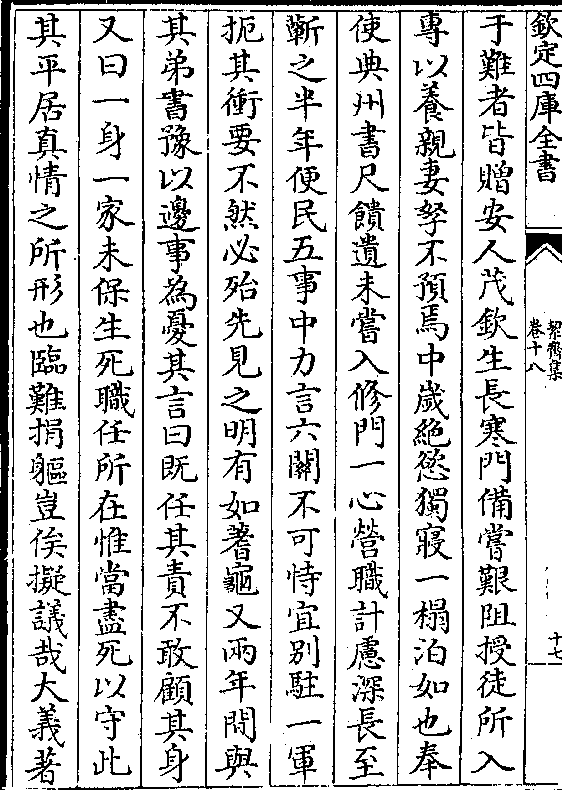 欽定四庫全書
絜齋集
卷十八
十七
于難者皆贈安人茂欽生長寒門備嘗艱阻授徒所入
專以養親妻孥不預焉中歲絶慾獨寢一榻泊如也奉
使典州書尺饋遺未嘗入修門一心營職計慮深長至
蘄之半年便民五事中力言六關不可恃宜别駐一軍
扼其衝要不然必殆先見之明有如蓍龜又兩年間與
其弟書豫以邊事為憂其言曰既任其責不敢顧其身
又曰一身一家未保生死職任所在惟當盡死以守此
其平居真情之所形也臨難捐軀豈俟擬議哉大義著